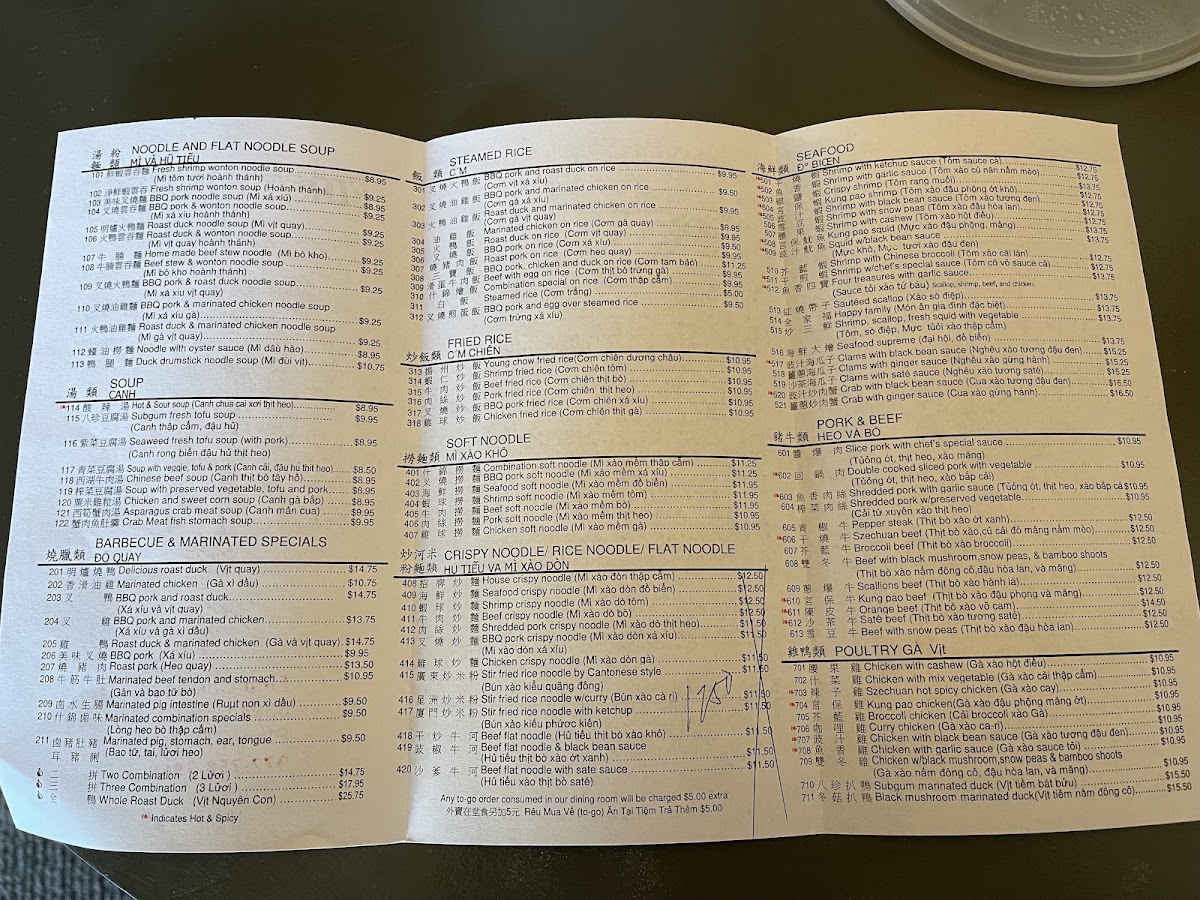 湯粉麵類 NOODLE AND FLAT NOODLE SOUP
MÌ VÀ HŨ TIẾU
101 鮮蝦雲吞麵 Fresh shrimp wonton noodle soup $8.95
(Mì tôm tươi hoành thánh)
102 淨鮮蝦雲吞 Fresh shrimp wonton soup (Hoành thánh) $9.25
103 美味叉燒麵 BBQ pork noodle soup (Mì xá xíu) $8.95
104 叉燒雲吞麵 BBQ pork & wonton noodle soup $9.25
(Mì xá xíu hoành thánh)
105 明爐火鴨麵 Roast duck noodle soup (Mì vịt quay) $9.25
106 火鴨雲吞麵 Roast duck & wonton noodle soup $9.25
(Mì vịt quay hoành thánh)
107 牛腩麵 Home made beef stew noodle (Mì bò kho) $9.25
108 牛腩雲吞麵 Beef stew & wonton noodle soup $9.25
(Mì bò kho hoành thánh)
109 叉燒火鴨麵 BBQ pork & roast duck noodle soup $9.25
(Mì xá xíu vịt quay)
110 叉燒油雞麵 BBQ pork & marinated chicken noodle soup
(Mì xá xíu gà) $9.25
111 火鴨油雞麵 Roast duck & marinated chicken noodle soup
(Mì gà vịt quay) $9.25
112 蠔油撈麵 Noodle with oyster sauce (Mì dầu hào) $9.25
113 鴨腿麵 Duck drumstick noodle soup (Mì đùi vịt) $10.75
湯類 SOUP
CANH
114 酸辣湯 Hot & Sour soup (Canh chua cai xơi thịt heo) $8.95
115 八珍豆腐湯 Subgum fresh tofu soup $9.95
(Canh thập cẩm, đậu hủ)
116 紫菜豆腐湯 Seaweed fresh tofu soup (with pork) $8.95
(Canh rong biển đậu hủ thịt heo)
117 青菜豆腐湯 Soup with veggie, tofu & pork (Canh cải, đậu hủ thịt heo) $8.50
118 西湖牛肉湯 Chinese beef soup (Canh thịt bò tây hồ) $8.95
119 榨菜豆腐湯 Soup with preserved vegetable, tofu and pork $8.95
120 粟米雞粒湯 Chicken and sweet corn soup (Canh gà bắp) $8.95
121 西筍蟹肉湯 Asparagus crab meat soup (Canh mãn cua) $9.95
122 蟹肉魚肚羹 Crab Meat fish stomach soup $9.95
燒臘類 BARBECUE & MARINATED SPECIALS
ĐỒ QUAY
201 明爐燒鴨 Delicious roast duck (Vịt quay) $14.75
202 香滑油雞 Marinated chicken (Gà xì dầu) $10.75
203 叉鴨 BBQ pork and roast duck $14.75
(Xá xíu và vịt quay)
204 叉雞 BBQ pork and marinated chicken $13.75
(Xá xíu và gà xì dầu)
205 雞鴨 Roast duck & marinated chicken (Gà và vịt quay) $14.75
206 美味叉燒 BBQ pork (Xá xíu) $9.95
207 燒豬肉 Roast pork (Heo quay) $13.50
208 牛筋牛肚 Marinated beef tendon and stomach $10.95
(Gân và bao tử bò)
209 鹵水生腸 Marinated pig intestine (Ruột non xì dầu) $9.50
210 什錦鹵味 Marinated combination specials $9.50
(Lòng heo bò thập cẩm)
211 鹵豬肚豬耳豬脷 Marinated pig, stomach, ear, tongue $9.50
(Bao tử, tai, lưỡi heo)
二拼 Two Combination (2 Lưỡi) $14.75
三拼 Three Combination (3 Lưỡi) $17.95
全鴨 Whole Roast Duck (Vịt Nguyên Con) $25.75
Indicates Hot & Spicy
飯類 STEAMED RICE
C´M
301 叉燒火鴨飯 BBQ pork and roast duck on rice $9.95
(Cơm vịt xá xíu)
302 叉燒油雞飯 BBQ pork and marinated chicken on rice $9.50
(Cơm gà xá xíu)
303 火鴨油雞飯 Roast duck and marinated chicken on rice $9.95
(Cơm gà vịt quay)
304 油雞飯 Marinated chicken on rice (Cơm gà quay) $9.50
305 火鴨飯 Roast duck on rice (Cơm vịt quay) $9.95
306 叉燒飯 BBQ pork on rice (Cơm xá xíu) $9.50
307 燒豬肉飯 Roast pork on rice (Cơm heo quay) $9.95
308 三寶飯 BBQ pork, chicken and duck on rice (Cơm tam bảo) $11.25
309 滑蛋牛肉飯 Beef with egg on rice (Cơm thịt bò trứng gà) $9.95
310 什錦燴飯 Combination special on rice (Cơm thập cẩm) $9.95
311 白飯 Steamed rice (Cơm trắng) $5.00
312 叉燒煎蛋飯 BBQ pork and egg over steamed rice $9.50
(Cơm trứng xá xíu)
炒飯類 FRIED RICE
C´M CHIÊN
313 揚州炒飯 Young chow fried rice(Cơm chiên dương châu) $10.95
314 蝦仁炒飯 Shrimp fried rice (Cơm chiên tôm) $10.95
315 牛肉炒飯 Beef fried rice (Cơm chiên thịt bò) $10.95
316 肉絲炒飯 Pork fried rice (Cơm chiên thịt heo) $10.95
317 叉燒炒飯 BBQ pork fried rice (Cơm chiên xá xíu) $10.95
318 雞球炒飯 Chicken fried rice (Cơm chiên thịt gà) $10.95
撈麵類 SOFT NOODLE
MÌ XÀO KHÔ
401 什錦撈麵 Combination soft noodle (Mì xào mềm thập cẩm) $11.25
402 叉燒撈麵 BBQ pork soft noodle (Mì xào mềm xá xíu) $11.25
403 海鮮撈麵 Seafood soft noodle (Mì xào mềm đồ biển) $11.95
404 蝦球撈麵 Shrimp soft noodle (Mì xào mềm tôm) $11.95
405 牛肉撈麵 Beef soft noodle (Mì xào mềm bò) $11.95
406 肉絲撈麵 Pork soft noodle (Mì xào mềm thịt heo) $10.95
407 雞球撈麵 Chicken soft noodle (Mì xào mềm gà) $10.95
炒河米粉麵類 CRISPY NOODLE/ RICE NOODLE/ FLAT NOODLE
HỦ TIẾU VA MÌ XÀO DÒN
408 招牌炒麵 House crispy noodle (Mì xào dòn thập cẩm) $12.50
409 海鮮炒麵 Seafood crispy noodle (Mì xào dòn đồ biển) $12.50
410 蝦球炒麵 Shrimp crispy noodle (Mì xào dò tôm) $12.50
411 牛肉炒麵 Beef crispy noodle (Mì xào dò bò) $12.50
412 肉絲炒麵 Shredded pork crispy noodle (Mì xào dò thịt heo) $11.50
413 叉燒炒麵 BBQ pork crispy noodle (Mì xào dòn xá xíu) $11.50
(Mì xào dòn xá xíu)
414 雞球炒麵 Chicken crispy noodle (Mì xào dòn gà) $11.50
415 廣東炒米粉 Stir fried rice noodle by Cantonese style $11.50
(Bún xào kiểu quãng đông)
416 星洲炒米粉 Stir fried rice noodle w/curry (Bún xào cà ri) $11.50
417 廈門炒米粉 Stir fried rice noodle with ketchup $11.50
(Bún xào kiểu phươc kiến)
418 干炒牛河 Beef flat noodle (Hủ tiếu thịt bò xào khô) $11.50
419 豉椒牛河 Beef flat noodle & black bean sauce $11.50
(Hủ tiếu thịt bò xào ớt xanh)
420 沙爹牛河 Beef flat noodle with sate sauce $11.50
(Hủ tiếu xào thịt bò satê)
Any to-go order consumed in our dining room will be charged $5.00 extra
外賣在堂食另加5元 Rêu Mua Về (to-go) Ăn Tại Tiệm Trả Thêm $5.00
海鮮類 SEAFOOD
Đ° BIŒN
Shrimp with ketchup sauce (Tôm xào cà) $12.75
Shrimp with garlic sauce (Tôm xào củ năn nấm mèo) $13.75
Crispy shrimp (Tôm rang muối) $13.75
Kung pao shrimp (Tôm xào đậu phộng ớt khô) $13.75
Shrimp with black bean sauce (Tôm xào tương đen) $13.75
Shrimp with snow peas (Tôm xào đậu hòa lan) $13.75
Shrimp with cashew (Tôm xào hột điều) $13.75
Kung pao squid (Mực xào đậu phộng, măng) $13.75
Squid w/black bean sauce $13.75
(Mực khô, Mực tươi xào đậu đen)
510 芥藍蝦 Shrimp with Chinese broccoli (Tôm xào cải làn) $13.75
511 干煎蝦 Shrimp w/chef's special sauce (Tôm có vỏ sauce cà) $13.75
512 魚香四寶 Four treasures with garlic sauce $13.75
(Sauce tỏi xào tứ bảu) Scallop, shrimp, beef, and chicken,
513 紅燒帶子 Sautéed scallop (Xào sò điệp) $13.75
514 全家福 Happy family (Món ăn gia đình đặc biệt) $13.75
515 炒三鮮 Shrimp, scallop, fresh squid with vegetable $13.75
(Tôm, sò điệp, Mực tuồi xào thập cẩm)
516 海鮮大燴 Seafood supreme (đại hội, đồ biển) $13.75
517 豉汁海瓜子 Clams with black bean sauce (Nghêu xào tương đen) $15.25
518 薑蔥海瓜子 Clams with ginger sauce (Nghêu xào gừng hành) $15.25
519 沙茶海瓜子 Clams with saté sauce (Nghêu xào tương saté) $15.25
520 豉汁炒肉蟹 Crab with black bean sauce (Cua xào tương đen) $16.50
521 薑蔥炒肉蟹 Crab with ginger sauce (Cua xào gừng hành) $16.50
豬牛類 PORK & BEEF
HEO VÀ BÒ
601 醬爆肉 Slice pork with chef's special sauce $10.95
(Tủông ớt, thịt heo, xào măng)
602 回鍋肉 Double cooked sliced pork with vegetable $10.95
(Tủông ớt, thịt heo, xào bắp cải)
603 魚香肉絲 Shredded pork with garlic sauce (Tủông ớt, thịt heo, xào bắp cả $10.95
604 榨菜肉絲 Shredded pork w/preserved vegetable $10.95
(Cải tứ xuyên xào thịt heo)
605 青椒牛 Pepper steak (Thịt bò xào ớt xanh) $12.50
606 干燒牛 Szechuan beef (Thịt bò xào,củ cải đỏ măng nấm mèo) $12.50
607 芥藍牛 Broccoii beef (Thịt bò xào broccoli) $12.50
608 雙冬牛 Beef with black mushroom,snow peas, & bamboo shoots
(Thịt bò xào nấm đông cô,đậu hòa lan, va măng) $12.50
609 蔥爆牛 Scallions beef (Thịt bò xào hành lá) $12.50
610 宮保牛 Kung pao beef (Thịt bò xào đậu phọng và măng) $12.50
611 陳皮牛 Orange beef (Thịt bò xào võ cam) $14.50
612 沙茶牛 Satê beef (Thịt bò xào tương saté) $12.50
613 雪豆牛 Beef with snow peas (Thịt bò xào đậu hòa lan) $12.50
雞鴨類 POULTRY GÀ Vịt
701 腰果雞 Chicken with cashew (Gà xào hột điều) $10.95
702 什菜雞 Chicken with mix vegetable (Gà xào cải thập cẩm) $10.95
703 辣子雞 Szechuan hot spicy chicken (Gà xào cay) $10.95
704 宮保雞 Kung pao chicken(Gà xào đậu phộng măng ớt) $10.95
705 芥藍雞 Broccoli chicken (Cải broccoli xào Gà) $10.95
706 咖喱雞 Curry chicken (Gà xào ca-ri) $10.95
707 豉汁雞 Chicken with black bean sauce (Gà xào tương đậu đen) $10.95
708 魚香雞 Chicken with garlic sauce (Gà xào sauce tỏi) $10.95
709 雙冬雞 Chicken w/black mushroom,snow peas & bamboo shoots
(Gà xào nấm đông cô, đậu hòa lan, và măng) $10.95
710 八珍扒鴨 Subgum marinated duck (Vịt tiềm bát bửu) $15.50
711 冬菇扒鴨 Black mushroom marinated duck(Vịt tiềm nấm đông cô) $15.50